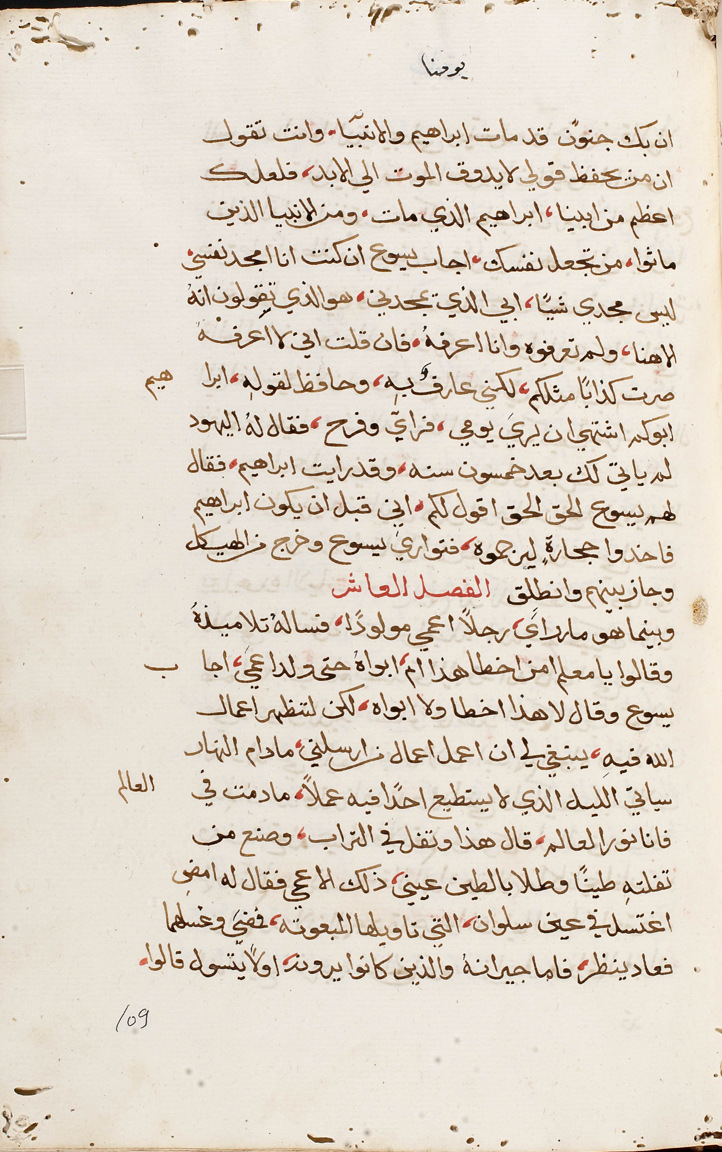 يوحنا
ان بك جنون قد مات ابراهيم والانبيا، وانت تقول
ان من يحفظ قولي لا يدوق الموت الي الابد، فلعلك
اعظم من ابينا، ابراهيم الذي مات، ومن الانبيا الذين
ماتوا، من تجعل نفسك، اجاب يسوع ان كنت انا امجد نفسي،
ليس مجدي شيًا، ابي الذي يمجدني، هو الذي تقولون انهُ
الاهنا، ولم تعرفوه وانا اعرفهُ، فان قلت اني لا اعرفهُ
صرت كذابًا مثلكم، لكني عارف بهِ، وحافظ لقولهِ، ابراهيم
ابوكم اشتهي ان يري يومي، فراي وفرح، فقال لهُ اليهود
لم ياتي لك بعد خمسون سنه، وقد رايت ابراهيم، فقال
لهم يسوع الحق الحق اقول لكم، اني قبل ان يكون ابراهيم
فاخدوا حجارةٍ ليرجموه، فتواري يسوع وخرج من الهيكل
وجاز بينهم وانطلق الفصل العاشر
وبينما هو مار راي، رجلاً اعمي مولودًا، فسالهُ تلاميذهُ
وقالوا يا معلم امن اخطا هذا ام، ابواهُ حتي ولد اعمي، اجاب
يسوع وقال لا هذا اخطا ولا ابواه، لكن لتظهر اعمال
الله فيهِ، ينبغي لي ان اعمل اعمال من ارسلني، مادام النهار
سياتي الليل الذي لا يستطيع احدًا فيه عملاً، مادمت في العالم
فانا نور العالم، قال هذا وتفل في التراب، وصنع من
تفلتهِ طينًا وطلا بالطين عيني، ذلك الاعمي فقال له امضِ
اغتسل في عين سلوان، التي تاويلها المبعوته، فمضي وغسلهما
فعاد ينظر، فاما جيرانهُ والذين كانوا يرونه، اولاً يتسول قالوا،
109